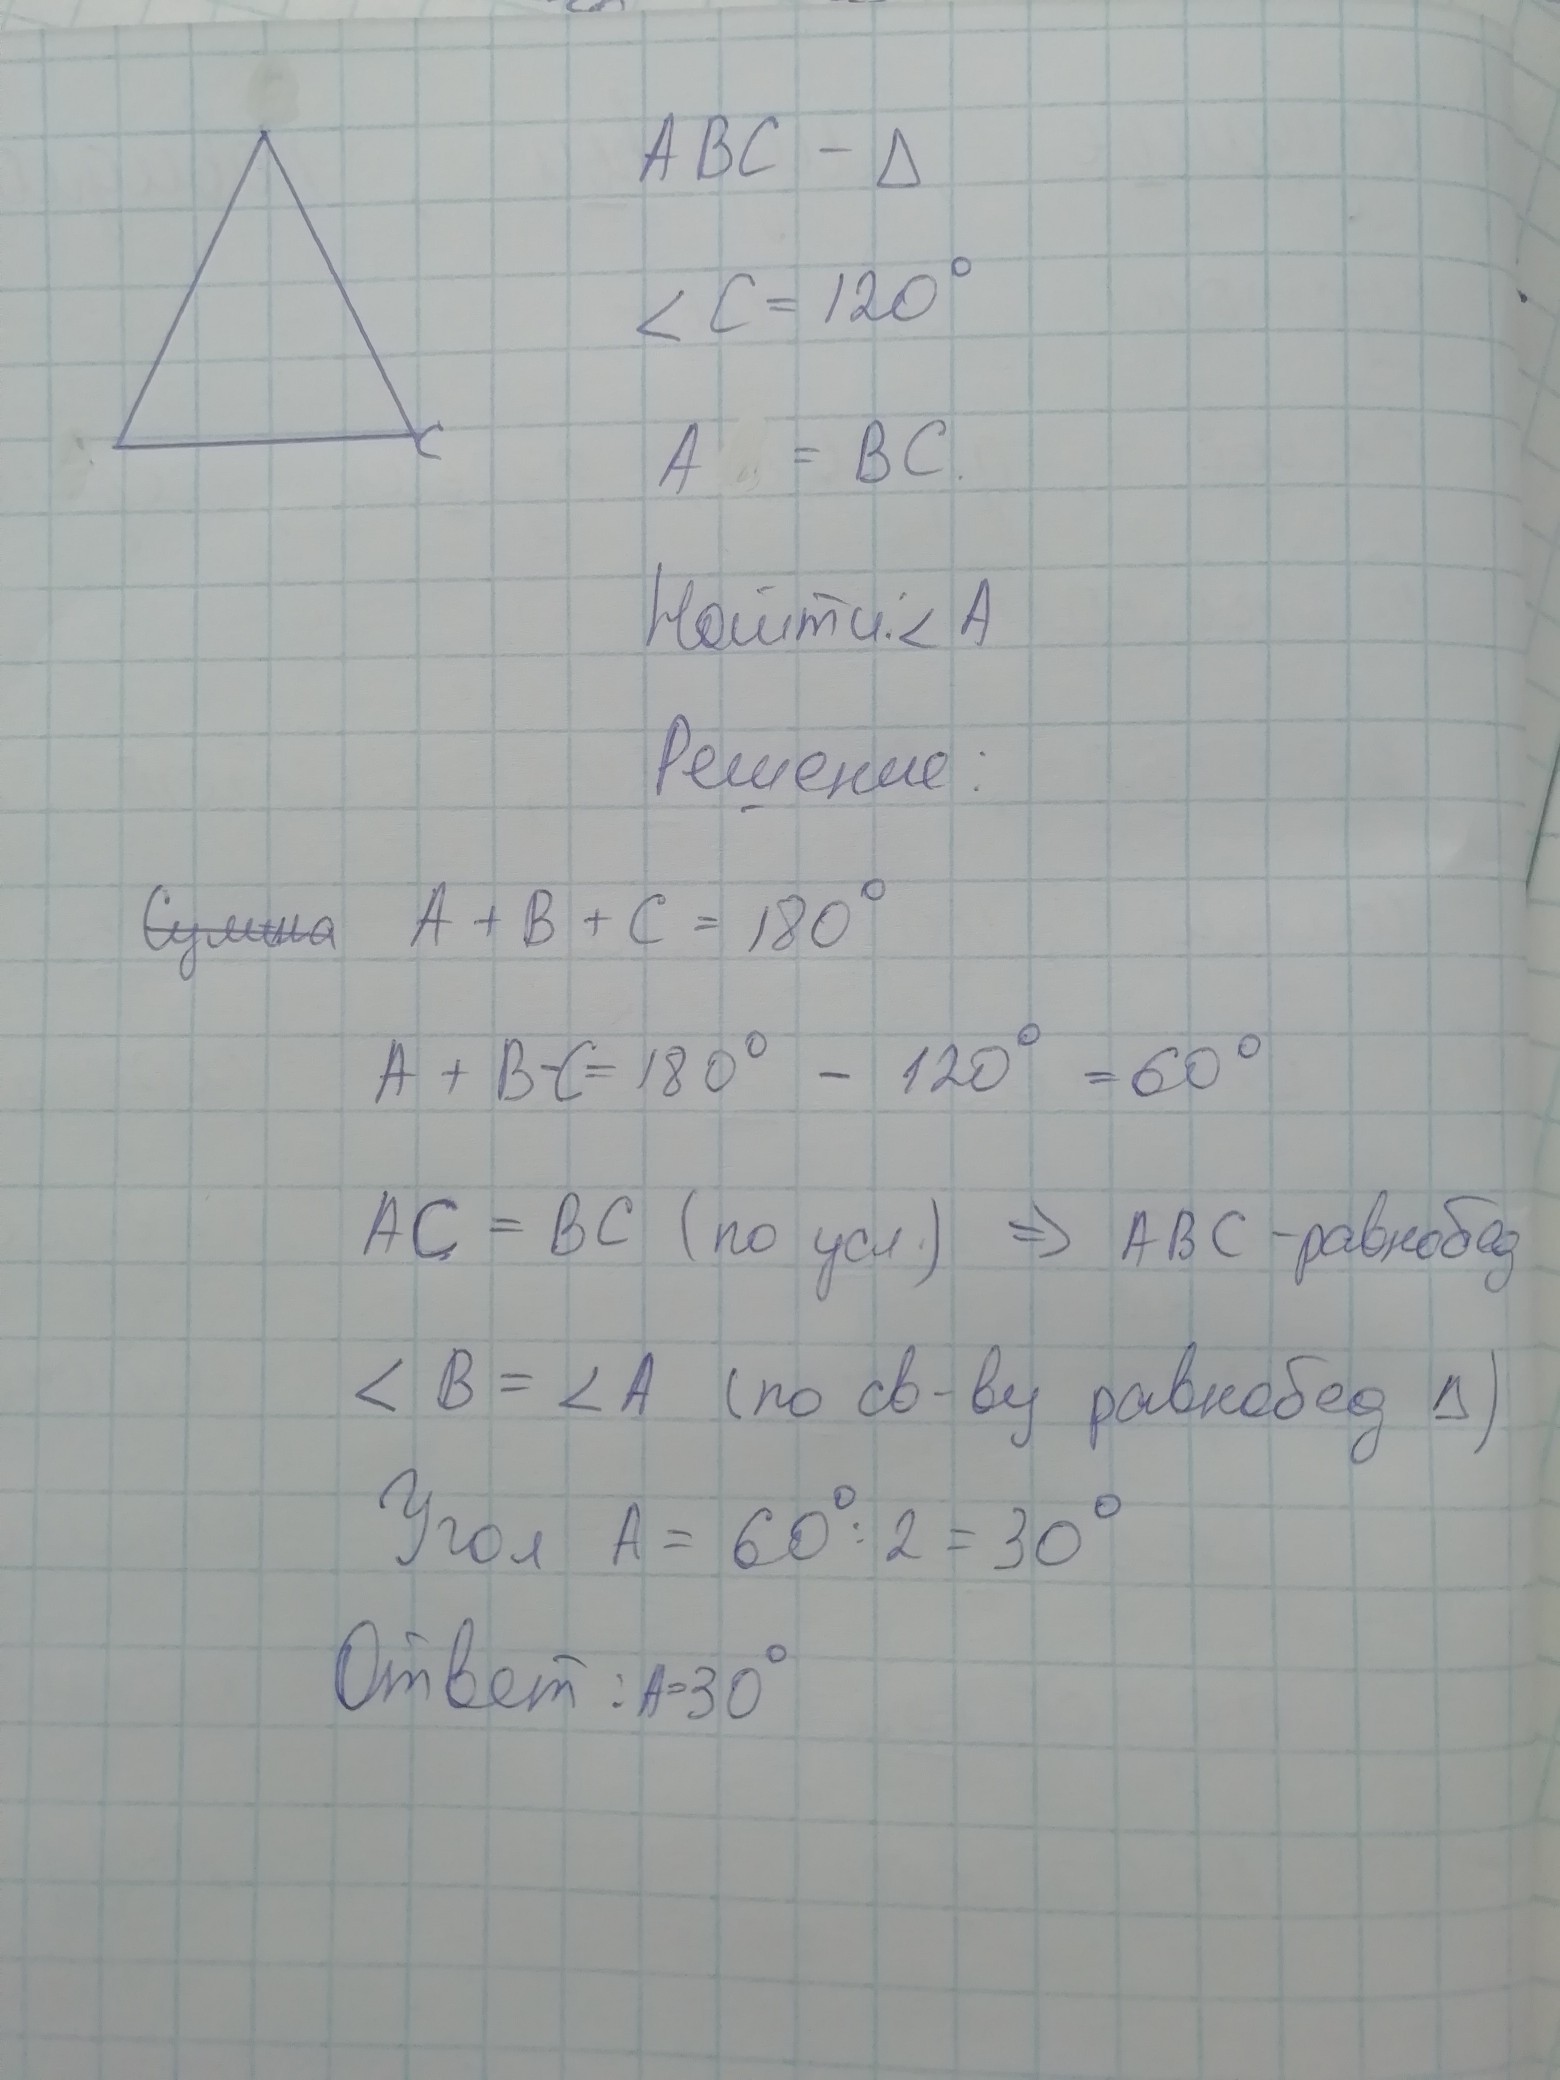 ABC - Δ
< C = 120°
C
A = BC.
Найти: < A
Решение:
Сумма A + B + C = 180°
A + B-C = 180° - 120° = 60°
AC = BC (по усл.) ⇒ ABC - равнобед
< B = < A (по св-ву равнобед Δ)
Угол A = 60° : 2 = 30°
Ответ : A=30°